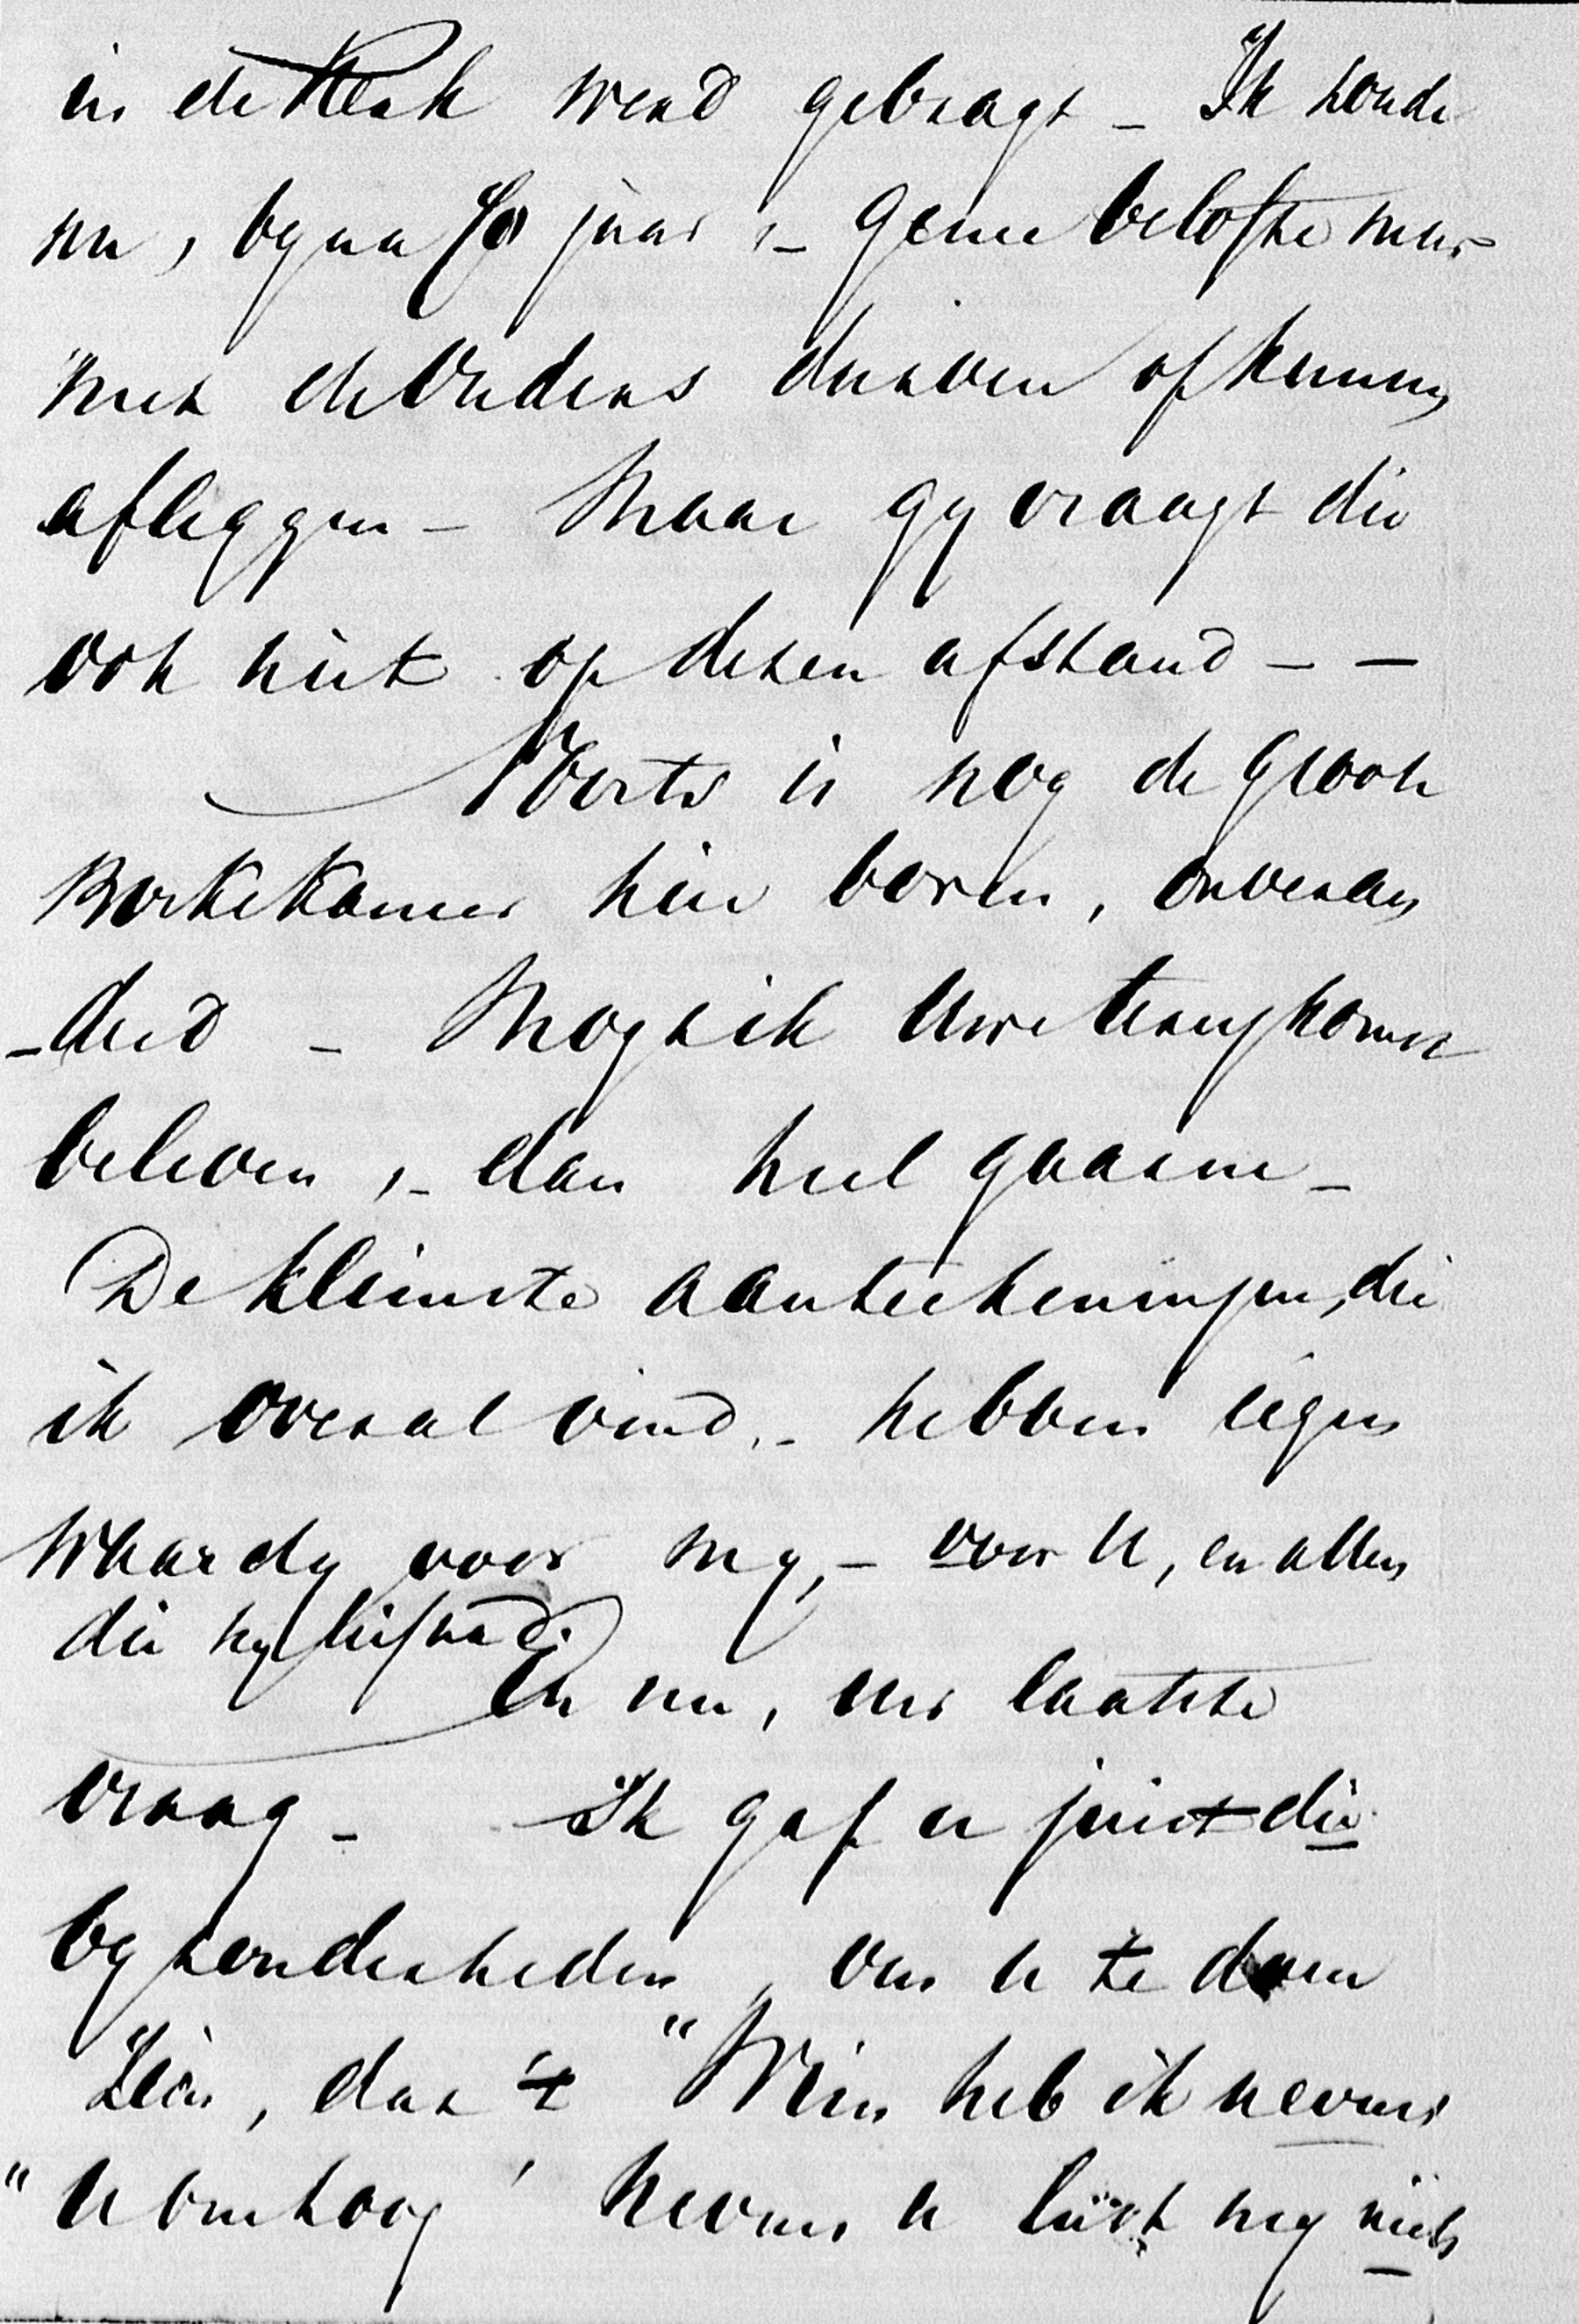 in de Kerk werd gebragt - Ik zoude
nu, byna 70 jaar, - geene belofte meer
met de Ouders durven of kunnen
afleggen - Maar gy vraagt die
ook niet op dezen afstand - -
Voorts is nog de groote
Boekekamer hier boven, onveran
-derd - Mogt ik Uwe terugkomst
beleven, - dan heel gaarne -
De kleinste aanteekeningen, die
ik overal vind, - hebben eigen
waardy voor my, - voor U, en allen
die hy lief had.
En nu, uw laatste
vraag - Ik gaf er juist die
byzonderheden, om U te doen
Zien, dat 't "Wien heb ik nevens
"U omhoog' nevens U lust my niets